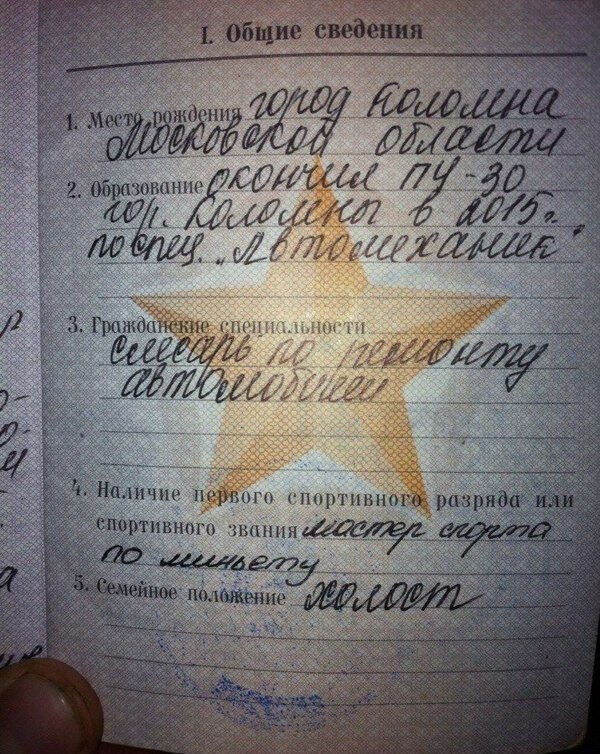 I. Общие сведения
1. Место рождения город Коломна
Московской области
2. Образование окончил ПУ-30
гор. Коломны в 2015г.
по спец. „Автомеханик"
3. Гражданские специальности
слесарь по ремонту
автомобилей
4. Наличие первого спортивного разряда или
спортивного звания мастер спорта
по миньету
5. Семейное положение холост